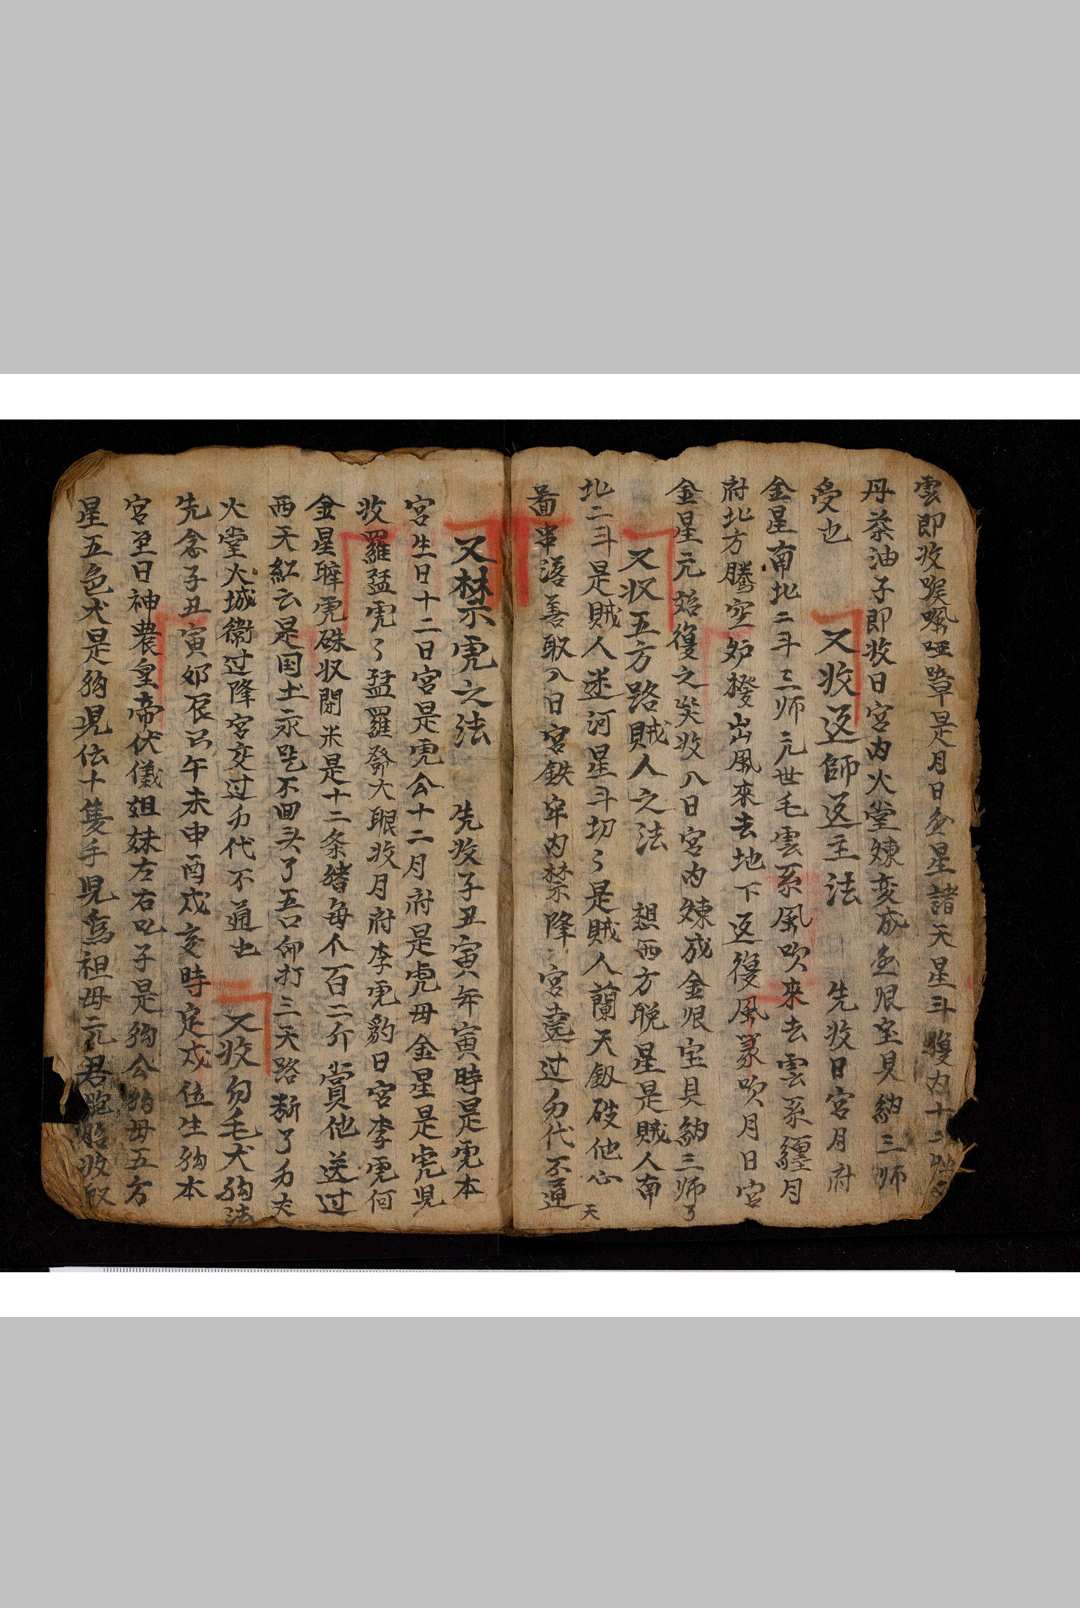 雲即收喉嚨哑障是月日金星諸天星斗腹内十二
丹茶油子即收日宮内火堂煉变成金艮宝貝納三师
受也
又收返師返主法 先收日宮月府
金星南北二斗三师元世毛雲系風吹來去雲系纏月
府北方騰空妒撥出風來去地下返復風篆吹月日宮
金星元始復之矣收入日宮内煉成金艮宝貝納三师了
又收五方路賊人之法 想西方脱星是賊人南
北二斗是賊人迷河星斗切々是賊人蘭天釰破他心天
番串落善取入日宮鉄牢内禁降宮尭过万代不通
又禁虎之法 先收子丑寅年寅時是虎本
宮生日十二日宮是虎公十二月府是虎母金星是虎児
收羅猛虎々猛羅發大眼收月府李虎豹日宮李虎何
金星㸿虎硃收閉米是十二条猪每个百二斤賞他送过
西天紅云是国土永吃不回头了五吕仰打三天路断了万夫
火堂火城衛过降宮交过万代不通也 又收勿毛犬狗法
先念子丑寅卯辰巳午未申酉戌亥時定戌位生狗本
宮至日神農皇帝伏儀姐妹左右吃子是狗公狗母五方
星五色犬是狗児伝十隻手児為祖母元君胞胎收取